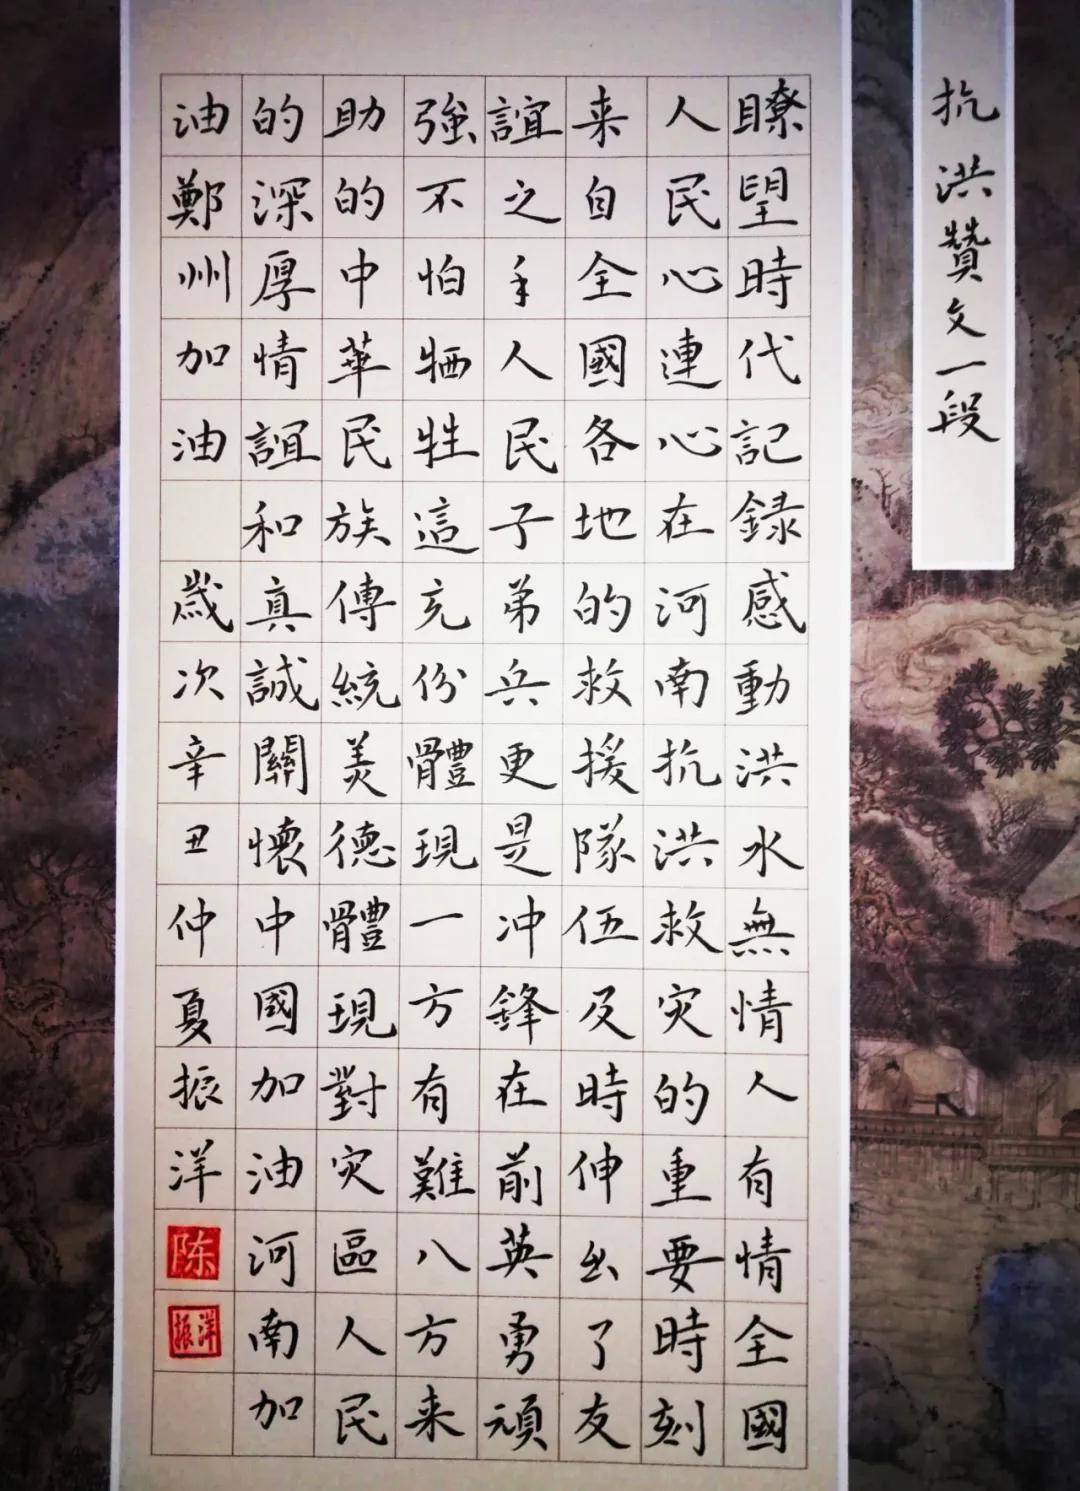 抗洪贊文一段
瞭望時代記録感動洪水無情人有情全國
人民心連心在河南抗洪救灾的重要時刻
来自全國各地的救援隊伍及時伸出了友
誼之手人民子弟兵更是冲鋒在前英勇頑
強不怕牺牲這充份體現一方有難八方来
助的中華民族傳統美德體現對灾區人民
的深厚情誼和真誠關懷中國加油河南加
油鄭州加油 歲次辛丑仲夏振洋
陈
振洋